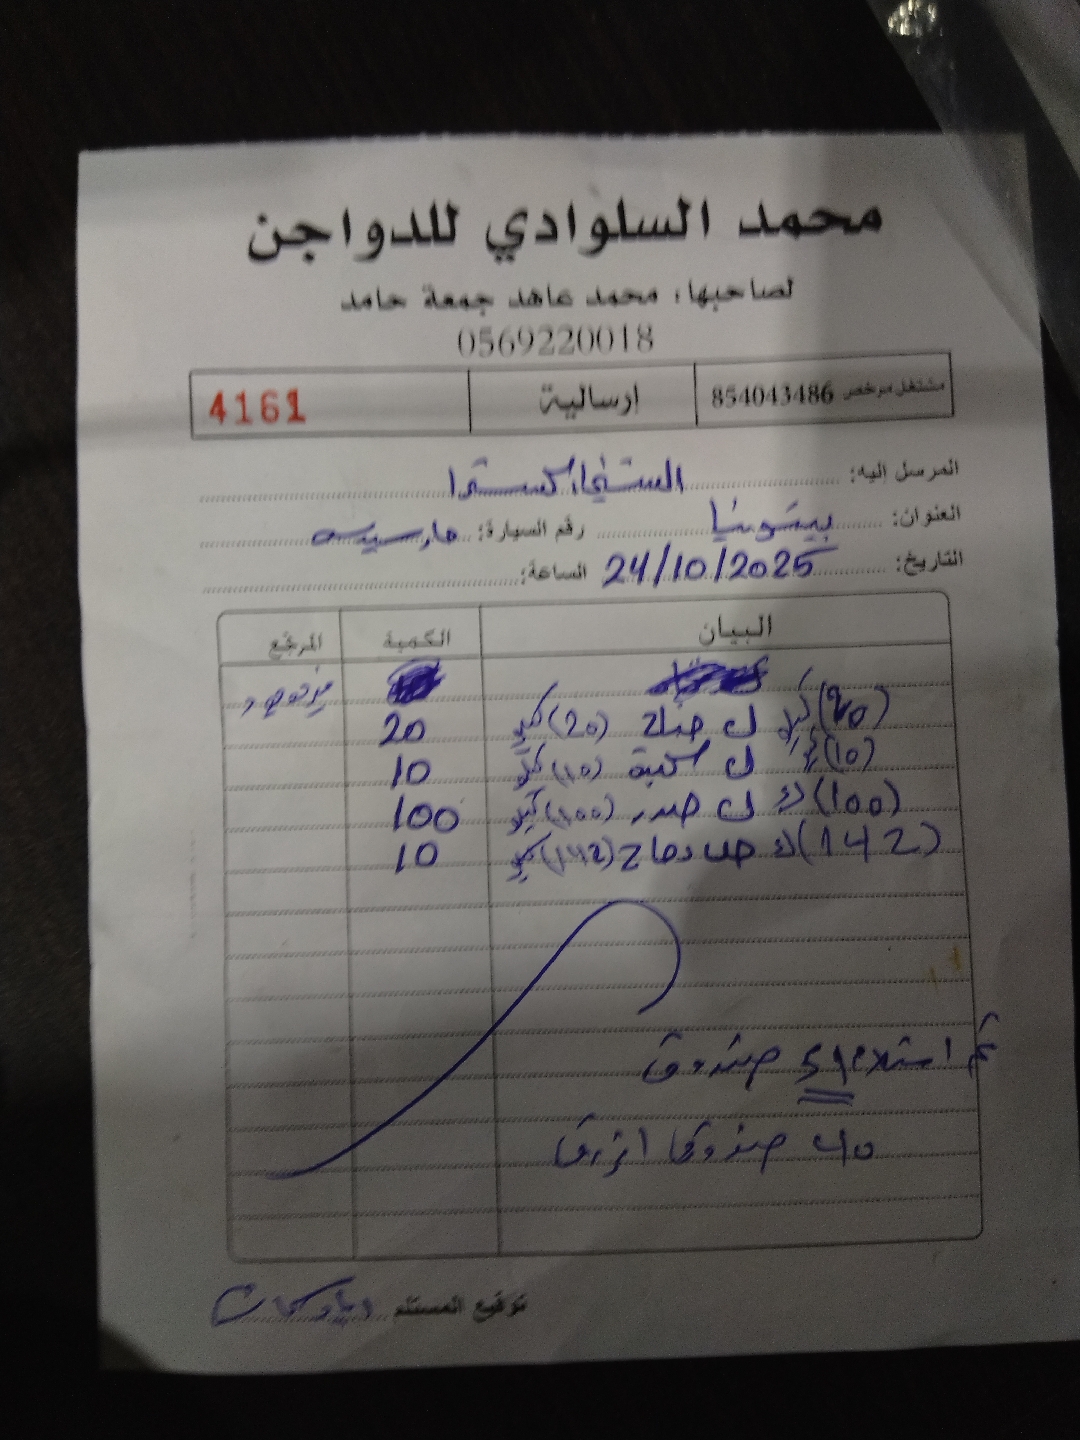 محمد السلوادي للدواجن
لصاحبها: محمد عاهد جمعة حامد
0569220018
مشتغل مرخص 854043486 ارسالية 4161
المرسل إليه:
العنوان: بيتونيا رقم السيارة:
التاريخ: 24/10/2025 الساعة:
البيان الكمية المرتجع
(20) كيلو ك جناح (20) كيلو 20
(10) ك (10) كيلو 10
(100) ك صدر (100) كيلو 100
(142) ك دجاج (142) كيلو 10
تم استلام صندوق
40 صندوق ازرق
توقيع المستلم